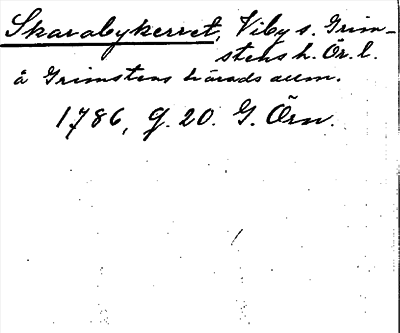 Skarabykerret, Viby s. Grim-
stens h. Ör. l.
å Grimstens härads allm.
1786, G. 20. G. Örn.